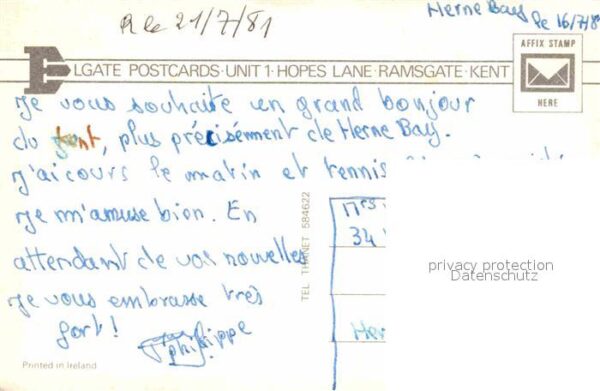 R le 21/7/81
Herne Bay le 16/7/8
AFFIX STAMP
HERE
ELGATE POSTCARDS · UNIT 1 · HOPES LANE · RAMSGATE · KENT
Je vous souhaite un grand bonjour
du Kent, plus précisément de Herne Bay.
J'ai cours le matin et tennis
Je m'amuse bien. En
attendant de vos nouvelles
je vous embrasse très
fort!
Philippe
TEL THANET 584622
Mrs
34
Her
privacy protection
Datenschutz
Printed in Ireland